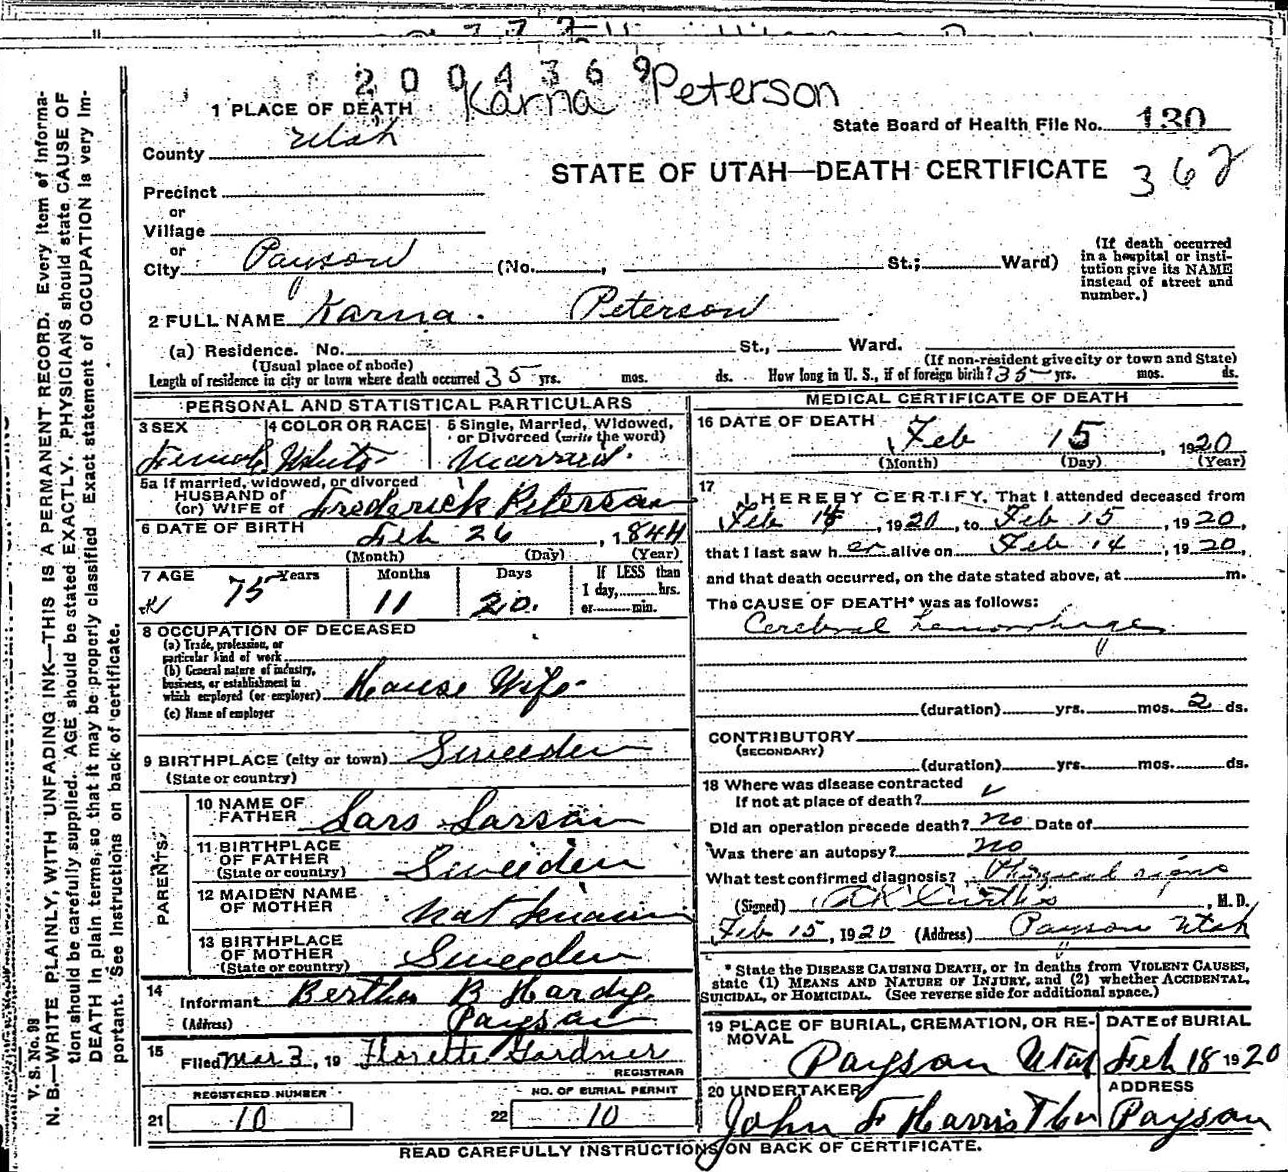 2004369
Karna Peterson
1 PLACE OF DEATH
State Board of Health File No. 130
County Utah
STATE OF UTAH—DEATH CERTIFICATE 362
Precinct
or
Village
or
City Payson (No. , St.; Ward)
(If death occurred in a hospital or institution give its NAME instead of street and number.)
2 FULL NAME Karna. Peterson
(a) Residence. No. St., Ward.
(Usual place of abode) (If non-resident give city or town and State)
Length of residence in city or town where death occurred 35 yrs. mos. ds. How long in U. S., if of foreign birth? 35 yrs. mos. ds.
PERSONAL AND STATISTICAL PARTICULARS
3 SEX Female
4 COLOR OR RACE White
5 Single, Married, Widowed, or Divorced (write the word) Married.
5a If married, widowed, or divorced
HUSBAND of
(or) WIFE of Frederick Peterson
6 DATE OF BIRTH Feb 26, 1844
(Month) (Day) (Year)
7 AGE 75 Years 11 Months 20. Days
If LESS than 1 day, hrs. or min.
8 OCCUPATION OF DECEASED
(a) Trade, profession, or particular kind of work
(b) General nature of industry, business, or establishment in which employed (or employer) House Wife
(c) Name of employer
9 BIRTHPLACE (city or town) Sweeden
(State or country)
PARENTS
10 NAME OF FATHER Lars Larson
11 BIRTHPLACE OF FATHER Sweeden
(State or country)
12 MAIDEN NAME OF MOTHER Not Known
13 BIRTHPLACE OF MOTHER Sweeden
(State or country)
14 Informant Bertha B Hardy.
(Address) Payson
15 Filed Mar 3, 19 Florette Gardner
REGISTRAR
REGISTERED NUMBER
21 10
NO. OF BURIAL PERMIT
22 10
MEDICAL CERTIFICATE OF DEATH
16 DATE OF DEATH Feb 15 1920
(Month) (Day) (Year)
17 I HEREBY CERTIFY, That I attended deceased from
Feb 14, 1920, to Feb 15, 1920,
that I last saw her alive on Feb 14, 1920,
and that death occurred, on the date stated above, at m.
The CAUSE OF DEATH* was as follows:
Cerebral hemorrhage
(duration) yrs. mos. 2 ds.
CONTRIBUTORY
(SECONDARY)
(duration) yrs. mos. ds.
18 Where was disease contracted
If not at place of death?
Did an operation precede death? no Date of
Was there an autopsy? no
What test confirmed diagnosis? Physical signs
(Signed) Curtis, M. D.
Feb 15, 1920 (Address) Payson Utah
* State the DISEASE CAUSING DEATH, or in deaths from VIOLENT CAUSES,
state (1) MEANS AND NATURE OF INJURY, and (2) whether ACCIDENTAL,
SUICIDAL, or HOMICIDAL. (See reverse side for additional space.)
19 PLACE OF BURIAL, CREMATION, OR REMOVAL Payson Utah
DATE of BURIAL Feb 18 1920
20 UNDERTAKER John F Harris
ADDRESS Payson
READ CAREFULLY INSTRUCTIONS ON BACK OF CERTIFICATE.
V. S. No. 98
N. B.—WRITE PLAINLY, WITH UNFADING INK—THIS IS A PERMANENT RECORD. Every item of information should be carefully supplied. AGE should be stated EXACTLY. PHYSICIANS should state CAUSE OF DEATH in plain terms, so that it may be properly classified. Exact statement of OCCUPATION is very important. See Instructions on back of certificate.